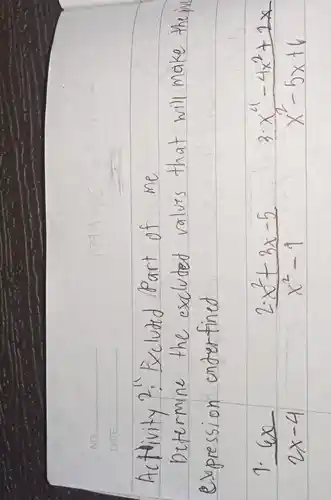 NO.
DATE
Activity 2: Excluded Part of me
Determine the excluded values that will make the
expression underfined
1. 6x / 2x-4
2. x²+3x-5 / x²-9
3. x⁴-4x²+2x / x²-5x+6